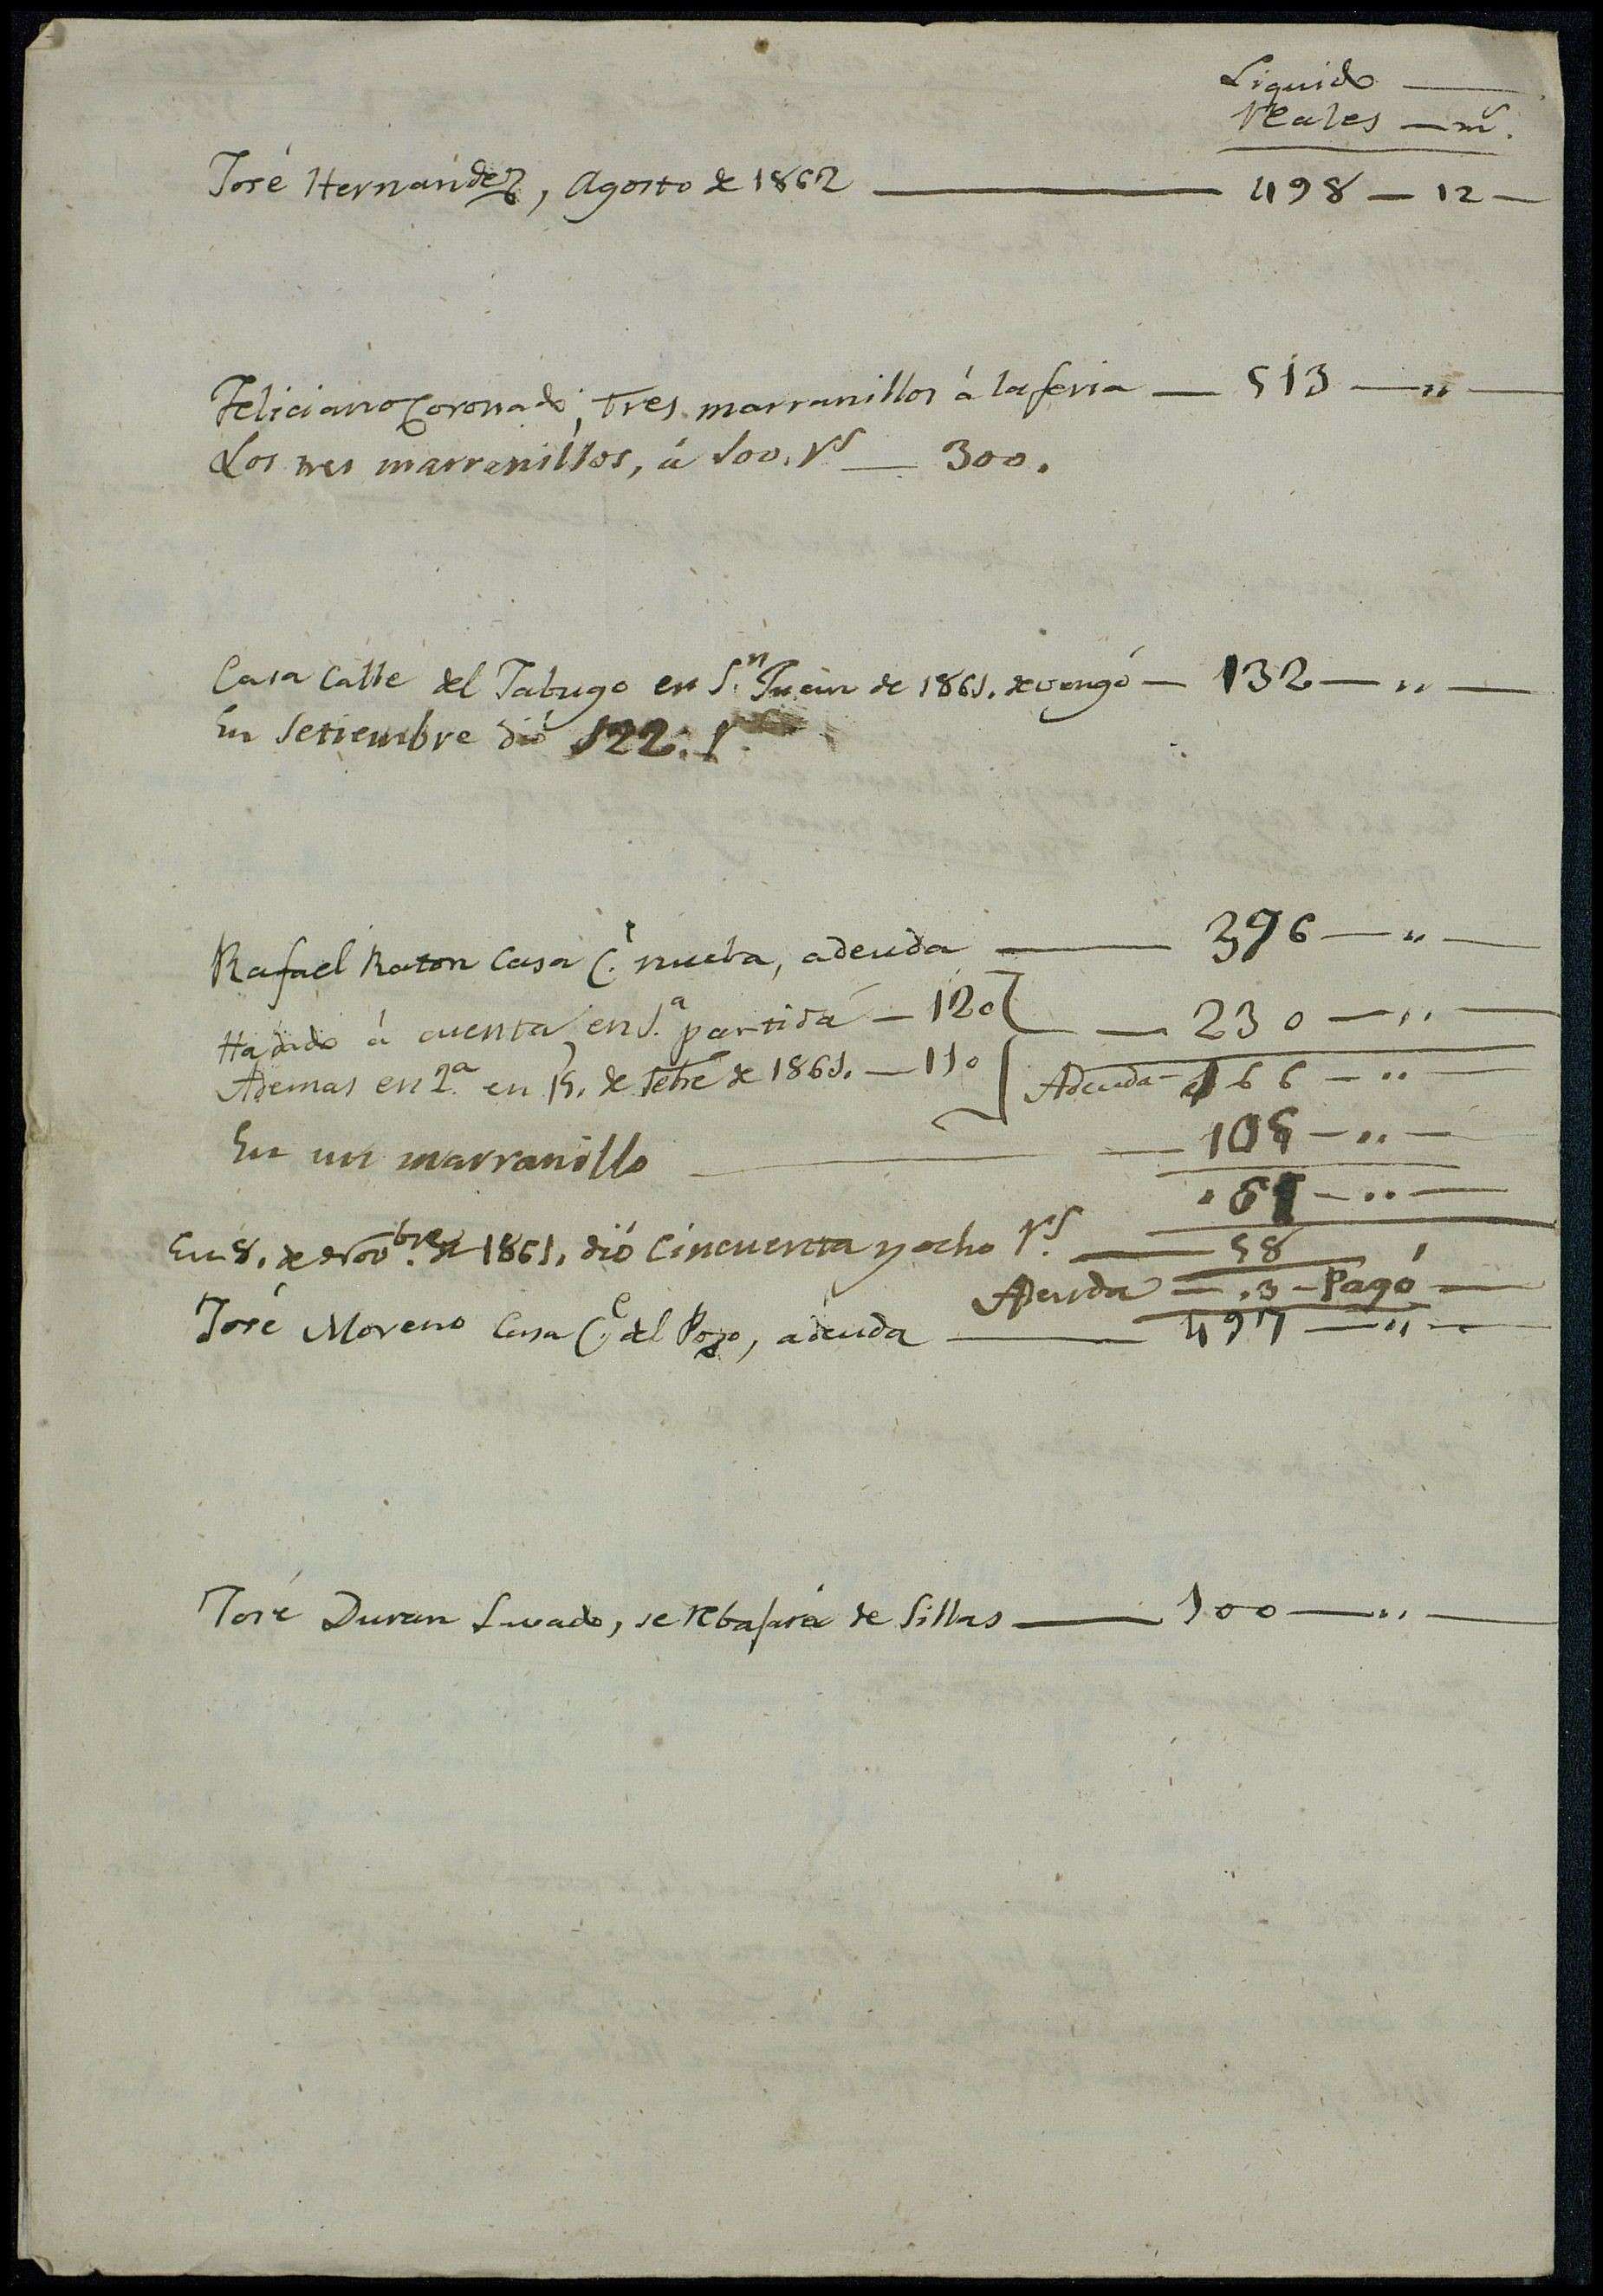 Liquido ——
Reales — ms.
José Hernandez, Agosto de 1862 —— 498 — 12 —
Feliciano Coronado, tres marranillos á la feria — 513 — ,, —
Los tres marranillos, á 100. rs — 300.
Casa Calle del Jabugo en Sn. Juan de 1861. devengó — 132 — ,, —
En Setiembre dió 122. r.
Rafael Raton Casa Ce. nueba, adeuda —— 396 — ,, —
Ha dado á cuenta en 1.a partida — 120 — 230 — ,, —
Ademas en 2.a en 15. de Setre de 1861. — 110 Adeuda — 166 — ,, —
En un marranillo —— 105 — ,, —
. 61 — ,, —
En 8. de Novbre. de 1861. dió Cincuenta y ocho rs. —— 58
Adeuda — . 3 — Pagó —
José Moreno Casa Ce. del Pozo, adeuda —— 497 — ,, —
José Duran Luado, se rebajará de Sillas —— 100 — ,, —